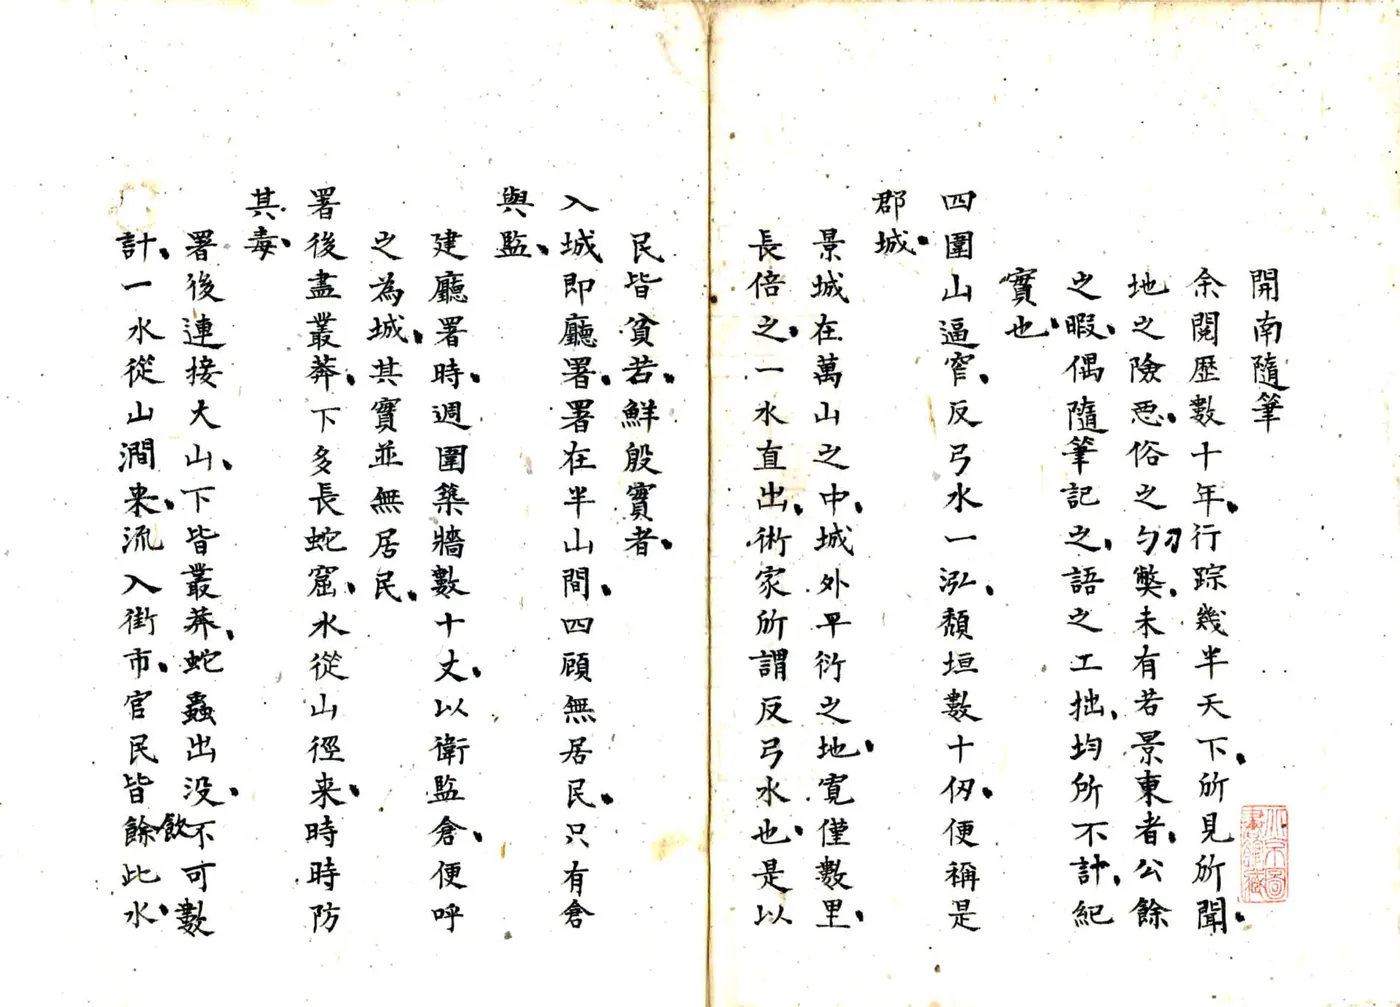 開南隨筆
余閱歷數十年、行踪幾半天下、所見所聞、
地之險惡、俗之勻刁弊、未有若景東者、公餘
之暇、偶隨筆記之、語之工拙、均所不計、紀
實也、
四圍山逼窄、反弓水一泓、頹垣數十仞、便稱是
郡城、
景城在萬山之中、城外平衍之地、寬僅數里、
長倍之、一水直出、術家所謂反弓水也、是以
民皆貧若、鮮殷實者、
入城即廳署、署在半山間、四顧無居民、只有倉
與監、
建廳署時、週圍築牆數十丈、以衛監倉、便呼
之為城、其實並無居民、
署後盡叢莽、下多長蛇窟、水從山徑来、時時防
其毒、
署後連接大山、下皆叢莽、蛇蟲出没、不可數
計、一水從山澗来、流入街市、官民皆餘飲此水、